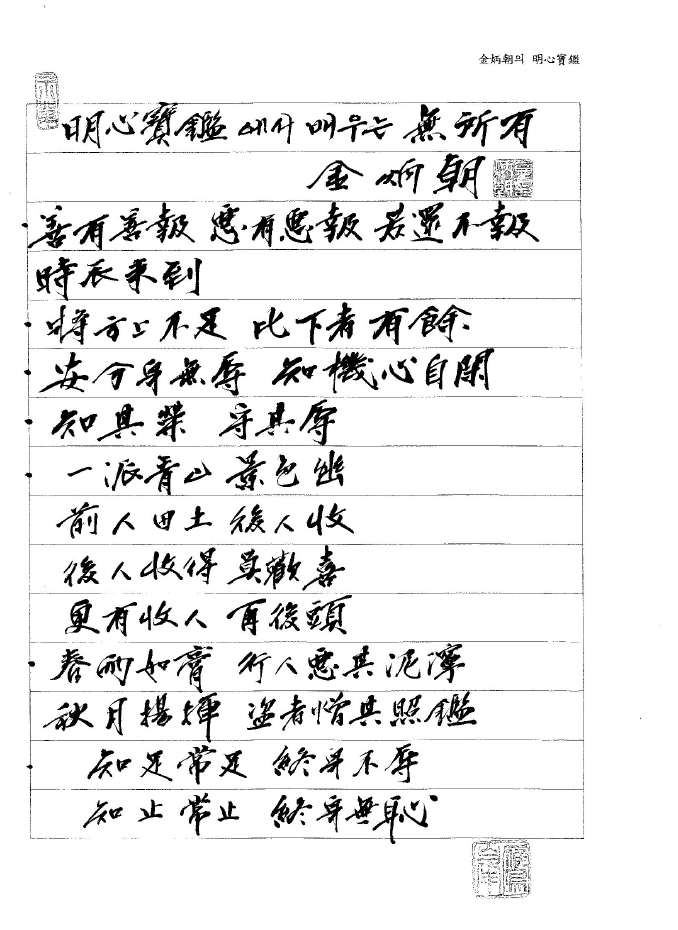 金炳朝의 明心寶鑑
明心寶鑑에서 배우는 無所有
金炳朝
· 善有善報 惡有惡報 若還不報
時辰未到
· 將上不足 比下者有餘
· 安分身無辱 知機心自閑
· 知其榮 守其辱
· 一派青山景色幽
前人田土後人收
後人收得莫歡喜
更有收人再後頭
· 春雨如膏 行人惡其泥濘
秋月揚輝 盜者憎其照鑑
· 知足常足 終身不辱
知止常止 終身無恥